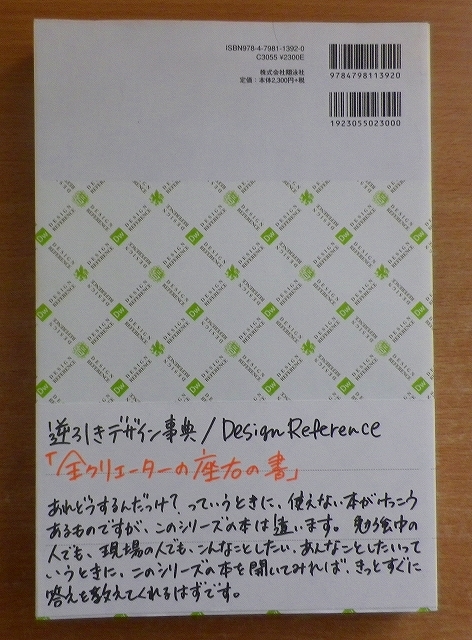 ISBN978-4-7981-1392-0
C3055 ¥2300E
株式会社翔泳社
定価：本体2,300円+税
9784798113920
1923055023000
DESIGN REFERENCE
Dw
逆引きデザイン事典/Design Reference
「全クリエーターの座右の書」
あれどうするんだっけ？っていうときに、使えない本がけっこう
あるものですが、このシリーズの本は違います。勉強中の
人でも、現場の人でも、こんなことしたい、あんなことしたいって
いうときに、このシリーズの本を開いてみれば、きっとすぐに
答えを教えてくれるはずです。